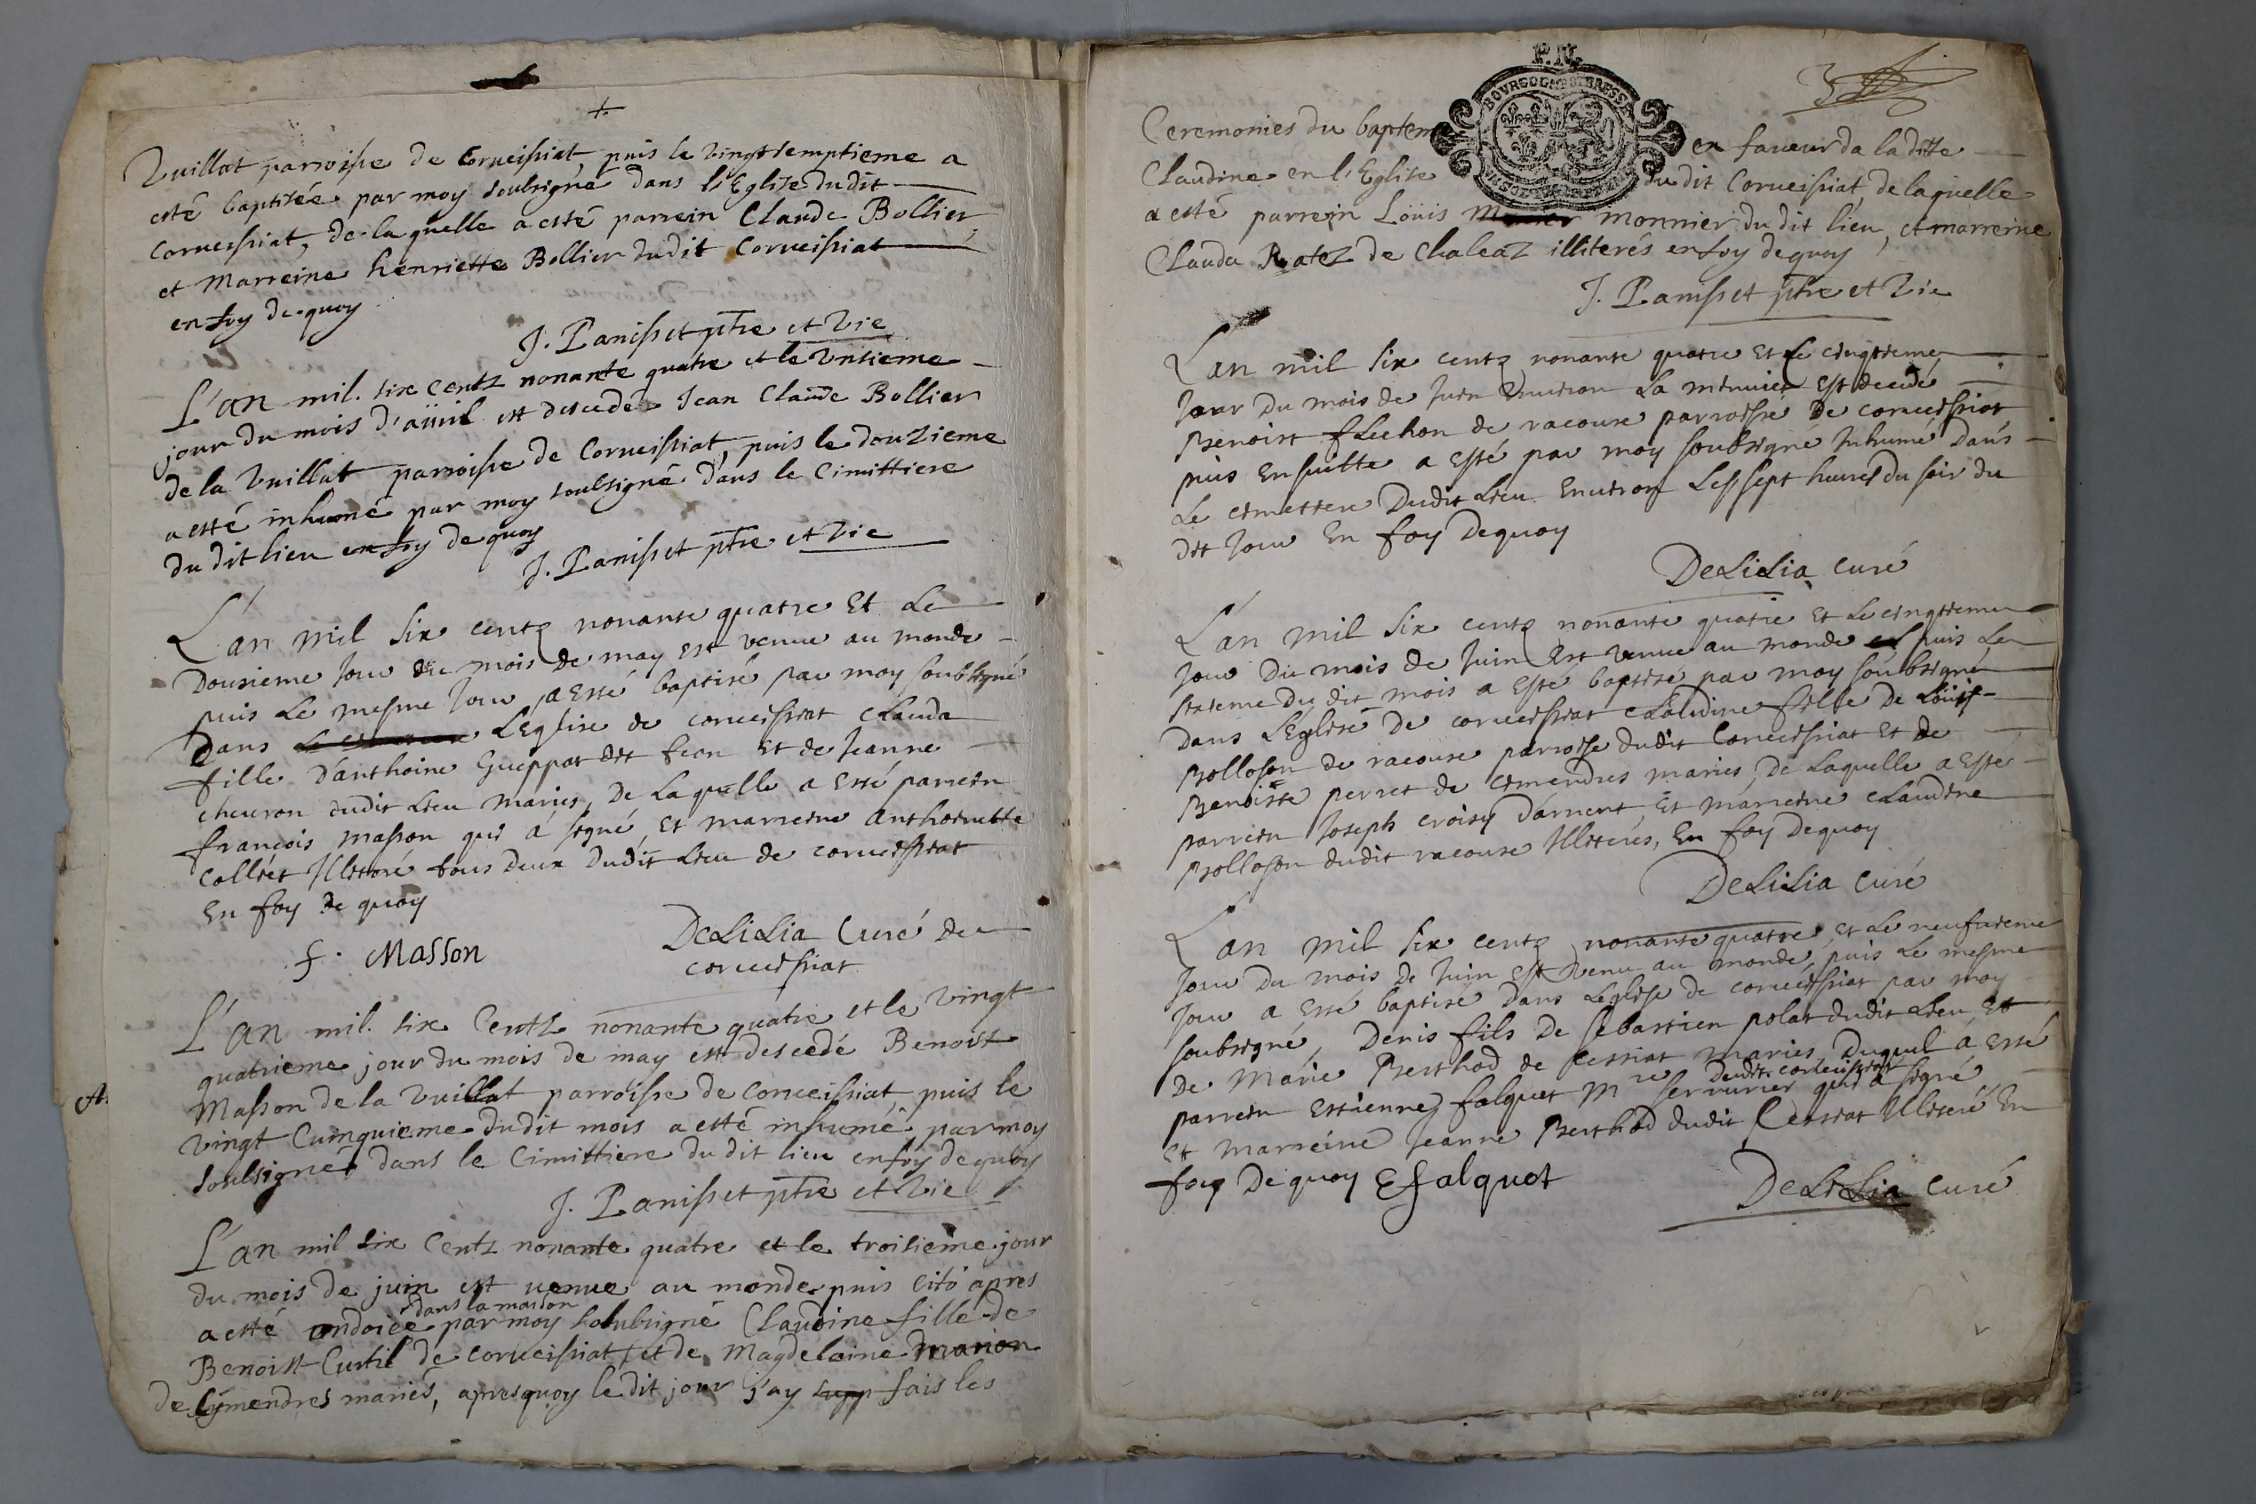 +
Vuillat parroisse de Corveissiat puis le vingtsemptieme a
esté baptisée par moy soubsigné dans l'Eglise du dit
Corveissiat, de laquelle a esté parrein Claude Bollier
et Marreine henriette Bollier dudit Corveissiat
en foy de quoy
J. Panisset ptre et vic
L'an mil. six Centz nonante quatre et le Vntieme
jour du mois d'auvril est descedé Jean Claude Bollier
de la Vuillat parroisse de Corveissiat, puis le douzieme
a esté inhumé par moy soubsigné dans le Cimittiere
du dit lieu en foy de quoy
J. Panisset ptre et vic
L'an mil six centz nonante quatre Et Le
Dousieme Jour du mois de may est venue au monde
puis Le mesme Jour a esté baptisé par moy soubsigné
Dans L'Eglise de corveissiat Clauda
fille D'anthoine Gueppat dit Jean Et de Jeanne
chevron dudit Lieu maries, De Laquelle a esté parrein
françois masson qui a signé, et marreine anthoinette
Colliet Illiteré tous deux Dudit Lieu de corveissiat
En foy de quoy
f. Masson DeLiLia Curé de
corveissiat
L'an mil. six Centz nonante quatre et le vingt
quatrieme jour du mois de may est descedé Benoist
Masson de la Vuillat parroisse de Corveissiat, puis le
vingt Cumquieme dudit mois a esté inhumé par moy
soubsigné dans le Cimittiere du dit lieu en foy de quoy
J. Panisset ptre et vic
L'an mil six Centz nonante quatre et le troisieme jour
du mois de juin est venue au monde puis cito apres
dans la maison
a esté ondoiée par moy soubsigné Claudine fille de
Benoist Curtil de corveissiat et de Magdelaine Marion
de Cymendres mariés, apres quoy le dit jour j'ay supp fais les
F. N.
BOVRGOGNE BRESSE
3
Ceremonies du baptem en faveur da la ditte
Claudine en l'Eglise du dit Corveissiat de laquelle
a esté parrein Loüis monnier du dit lieu, et marreine
Clauda Ratez de Chaleaz illiterés en foy de quoy
J. Panisset ptre et vic
L'an mil six centz nonante quatre Et Le cinqtieme
Jour Du mois de Juin Environ La minuict Est decedé
Benoist fLechon de racouse parroisse de corveissiat
puis Ensuitte a Esté par moy soubsigné Inhumé Dans
Le cimettere Dudit Lieu Environ Les sept heures du soir du
dit Jour En foy Dequoy
DeLiLia curé
L'an mil six centz nonante quatre et Le cinqtieme
Jour Du mois de Juin Est venue au monde puis Le
sixieme Du dit mois a Esté baptisé par moy soubsigné
Dans L'Eglise De corveissiat cLaudine fille De Loüis
Bolloson de racouse parroisse dudit Corveissiat Et de
Benoiste perret de cimendres maries, De Laquelle a Esté
parrein Joseph croisy D'arnent, Et marreine cLaudine
Bolloson dudit racouse Illiterés, En foy Dequoy
DeLiLia Curé
L'an mil six centz nonante quatre et Le neufvieme
Jour Du mois de Juin Est venu au monde, puis Le mesme
Jour a Esté baptisé Dans L'eglise de corveissiat par moy
soubsigné, Denis fils De sebastien polat dudit Lieu, Et
De Marie Berthod de Cessiat maries, Duquel a Esté
dudit corveissiat
parrein Estienne falquet Mre serrurier qui a signé
Et marreine Jeanne Berthod dudit Cessiat Illiteré En
foy De quoy Efalquet DeLiLia Curé